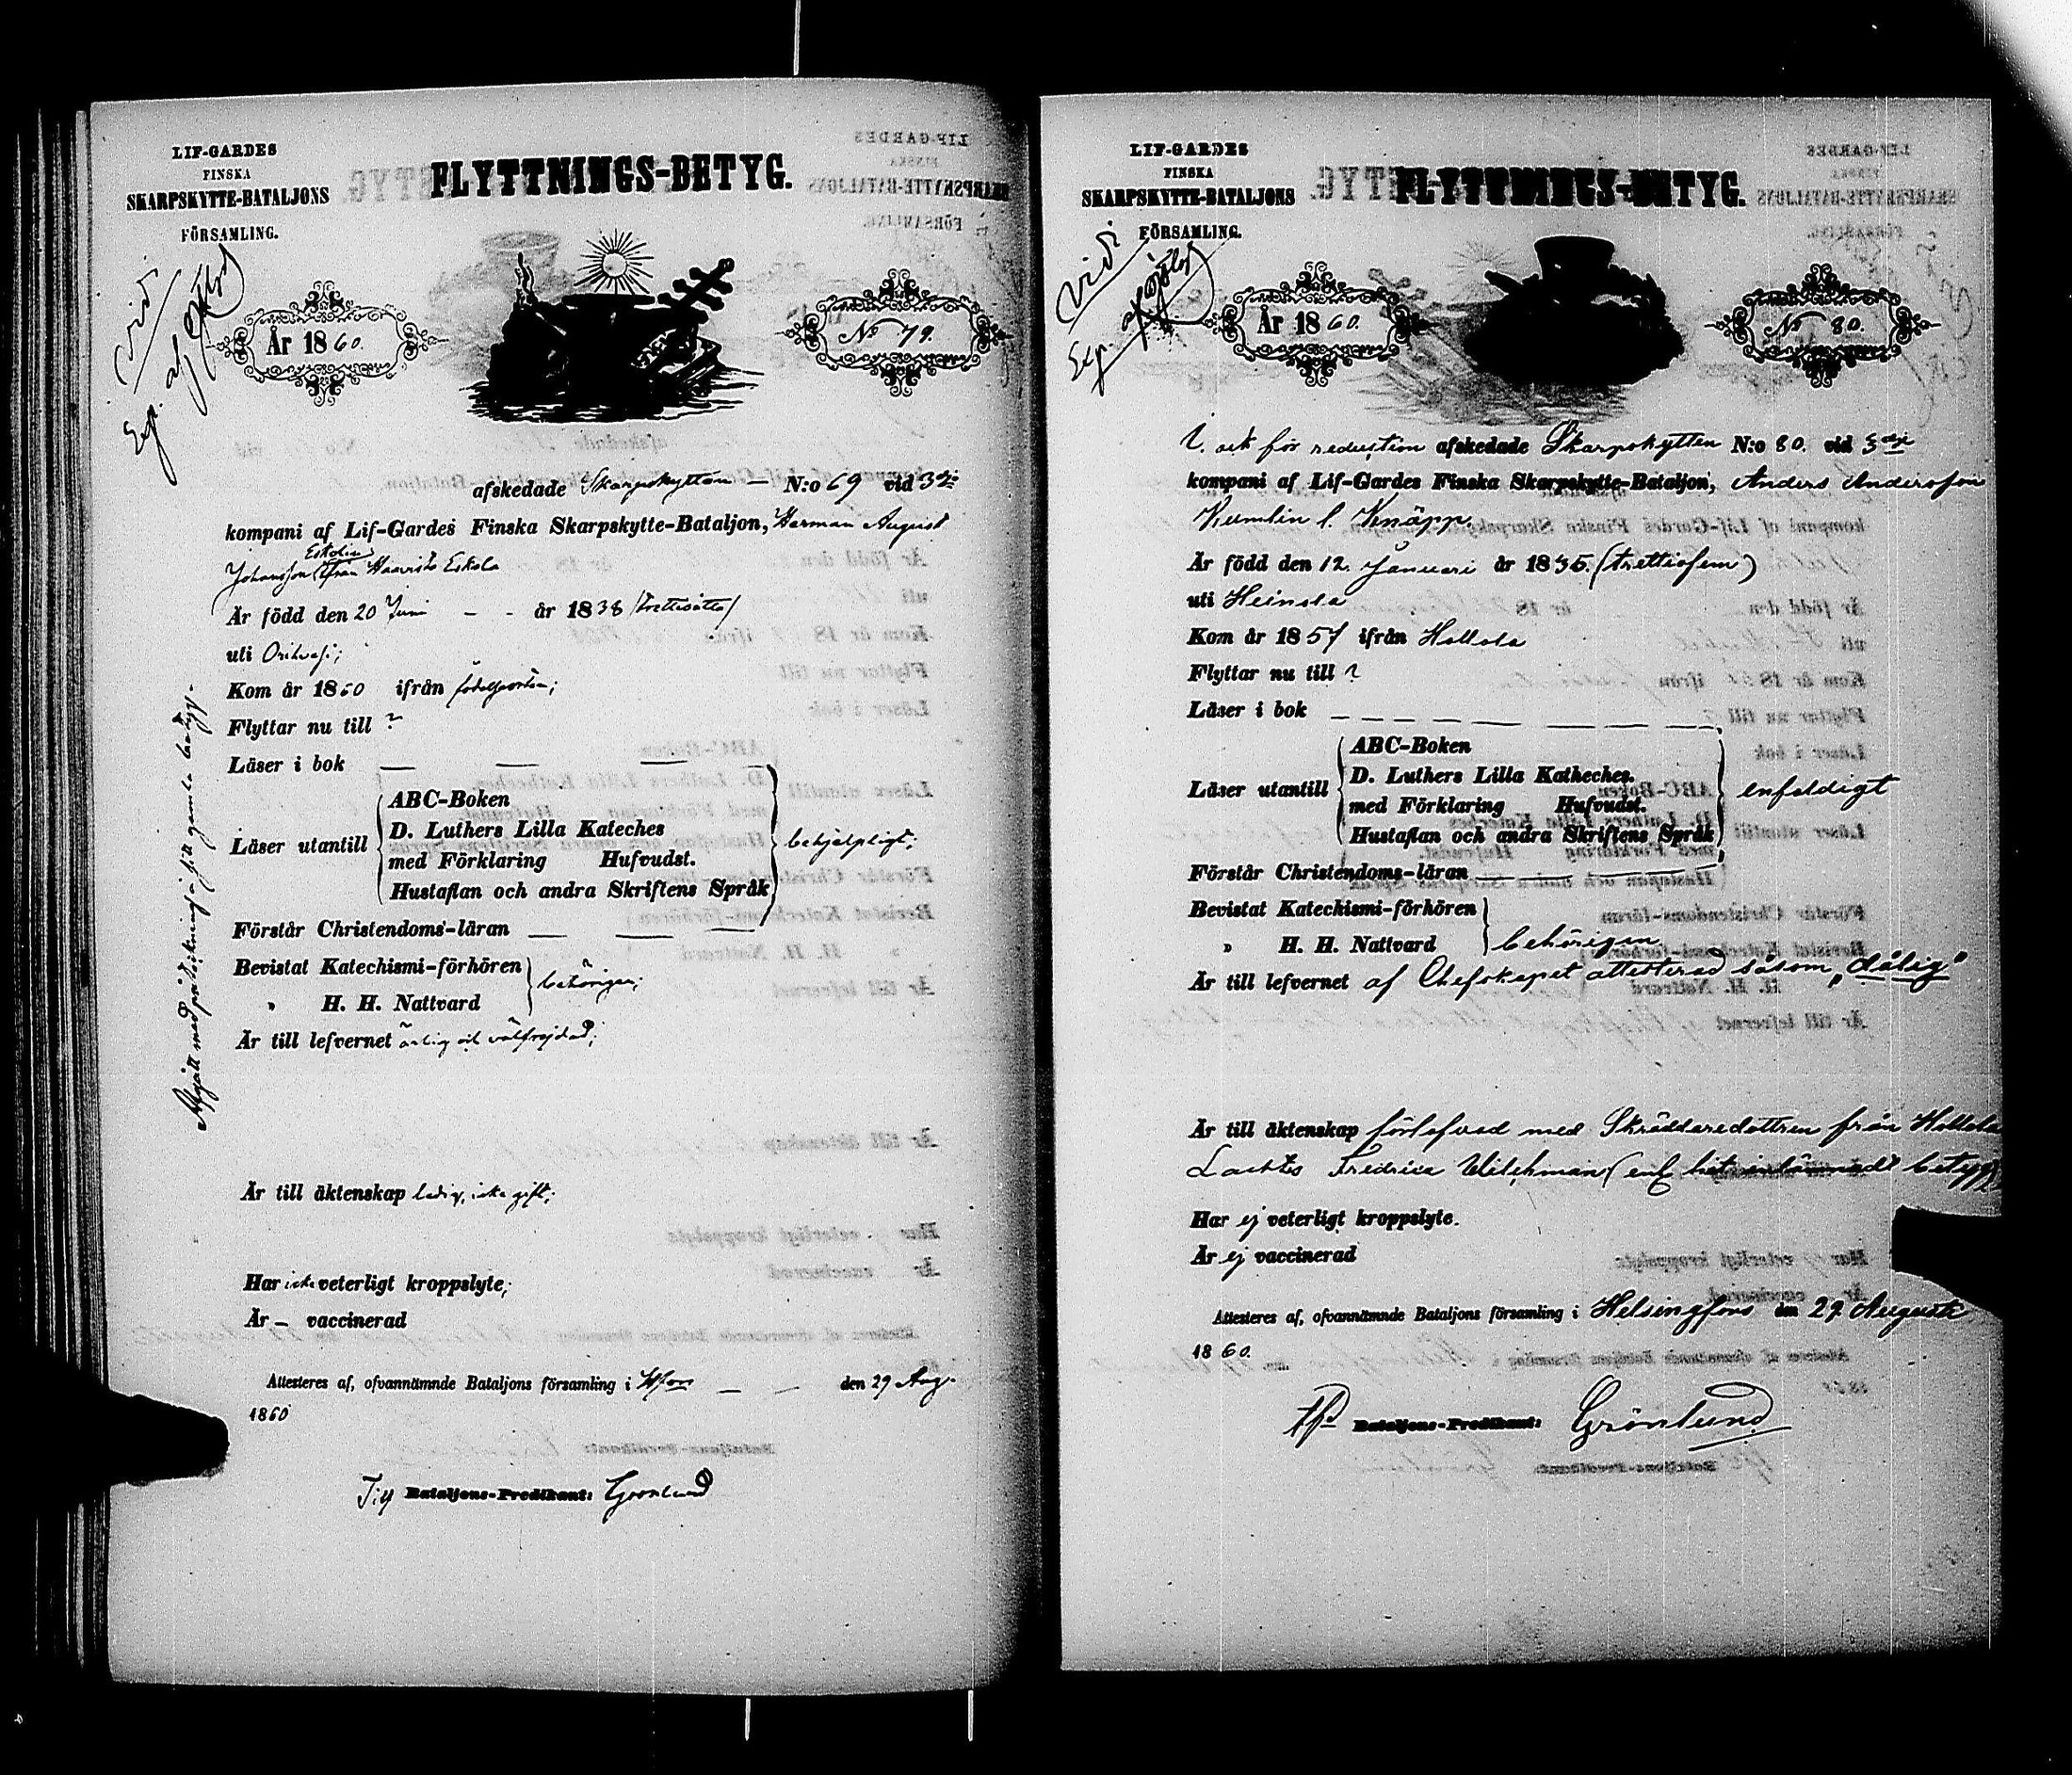 LIF-GARDES
FINSKA
SKARPSKYTTE-BATALJONS
FÖRSAMLING.
FLYTTNINGS-BETYG.
vidi
Exp. af
År 1860.
No 79.
afskedade Skarpskytten — N:o 69 vid 3dje
kompani af Lif-Gardes Finska Skarpskytte-Bataljon, Herman August
Eskolin
Johansson från Haavisto Eskola
Är född den 20 Juni - - år 1838 /trettiåtta/
uti Orihvesi;
Kom år 1860 ifrån födelseorten;
Flyttar nu till ?
Läser i bok — — —
Läser utantill
ABC-Boken
D. Luthers Lilla Kateches
med Förklaring Hufvudst.
Hustaflan och andra Skriftens Språk
behjelpligt;
Förstår Christendoms-läran — — —
Bevistat Katechismi-förhören
" H. H. Nattvard
behörigen;
Är till lefvernet ärlig och välfrejdad;
Är till äktenskap ledig, icke gift;
Har icke veterligt kroppslyte;
Är — vaccinerad
Attesteres af, ofvannämnde Bataljons församling i Hfors — — den 29 Aug.
1860
T.f. Bataljons-Predikant: Grönlund
Afgått med påteckning å sitt gamla betyg.
LIF-GARDES
FINSKA
SKARPSKYTTE-BATALJONS
FÖRSAMLING.
FLYTTNINGS-BETYG.
Vidi
Exp. af
År 1860.
No 80.
för reduction afskedade Skarpskytten N:o 80. vid 3dje
kompani af Lif-Gardes Finska Skarpskytte-Bataljon, Anders Andersson
Kumlin l. Knäpp.
Är född den 12. Januari år 1835. (trettiofem)
uti Heinola
Kom år 1857 ifrån Hollola
Flyttar nu till ?
Läser i bok — — — — — — — —
Läser utantill
ABC-Boken
D. Luthers Lilla Katheches.
med Förklaring Hufvudst.
Hustaflan och andra Skriftens Språk
enfaldigt
Förstår Christendoms-läran — — — —
Bevistat Katechismi-förhören
" H. H. Nattvard
behörigen
Är till lefvernet af Chefskapet attesterad såsom „dålig"
Är till äktenskap förlofvad med Skräddaredottren från Hollola
Lachtis Fredrica Wilchman (enl. hit inlämnadt betyg)
Har ej veterligt kroppslyte.
Är ej vaccinerad
Attesteres af, ofvannämnde Bataljons församling i Helsingfors den 29 Augusti
1860.
tf Bataljons-Predikant: Grönlund